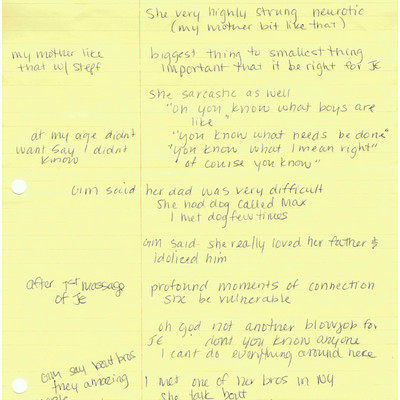 She very highly strung neurotic
(my mother bit like that)
my mother like
that w/ stepf
biggest thing to smallest thing
important that it be right for JE
she sarcastic as well
"oh you know what boys are
like"
at my age didnt
want say I didnt
know
"you know what needs be done"
"you know what I mean right"
"of course you know"
GM said
her dad was very difficult
She had dog called Max
I met dog few times
GM said she really loved her father &
idoliced him
after 1st massage
of JE
profound moments of connection
she be vulnerable
oh god not another blowjob for
JE dont you know anyone
I cant do everything around here
GM say bros
they amazing
I met one of her bros in NY
She talk bout